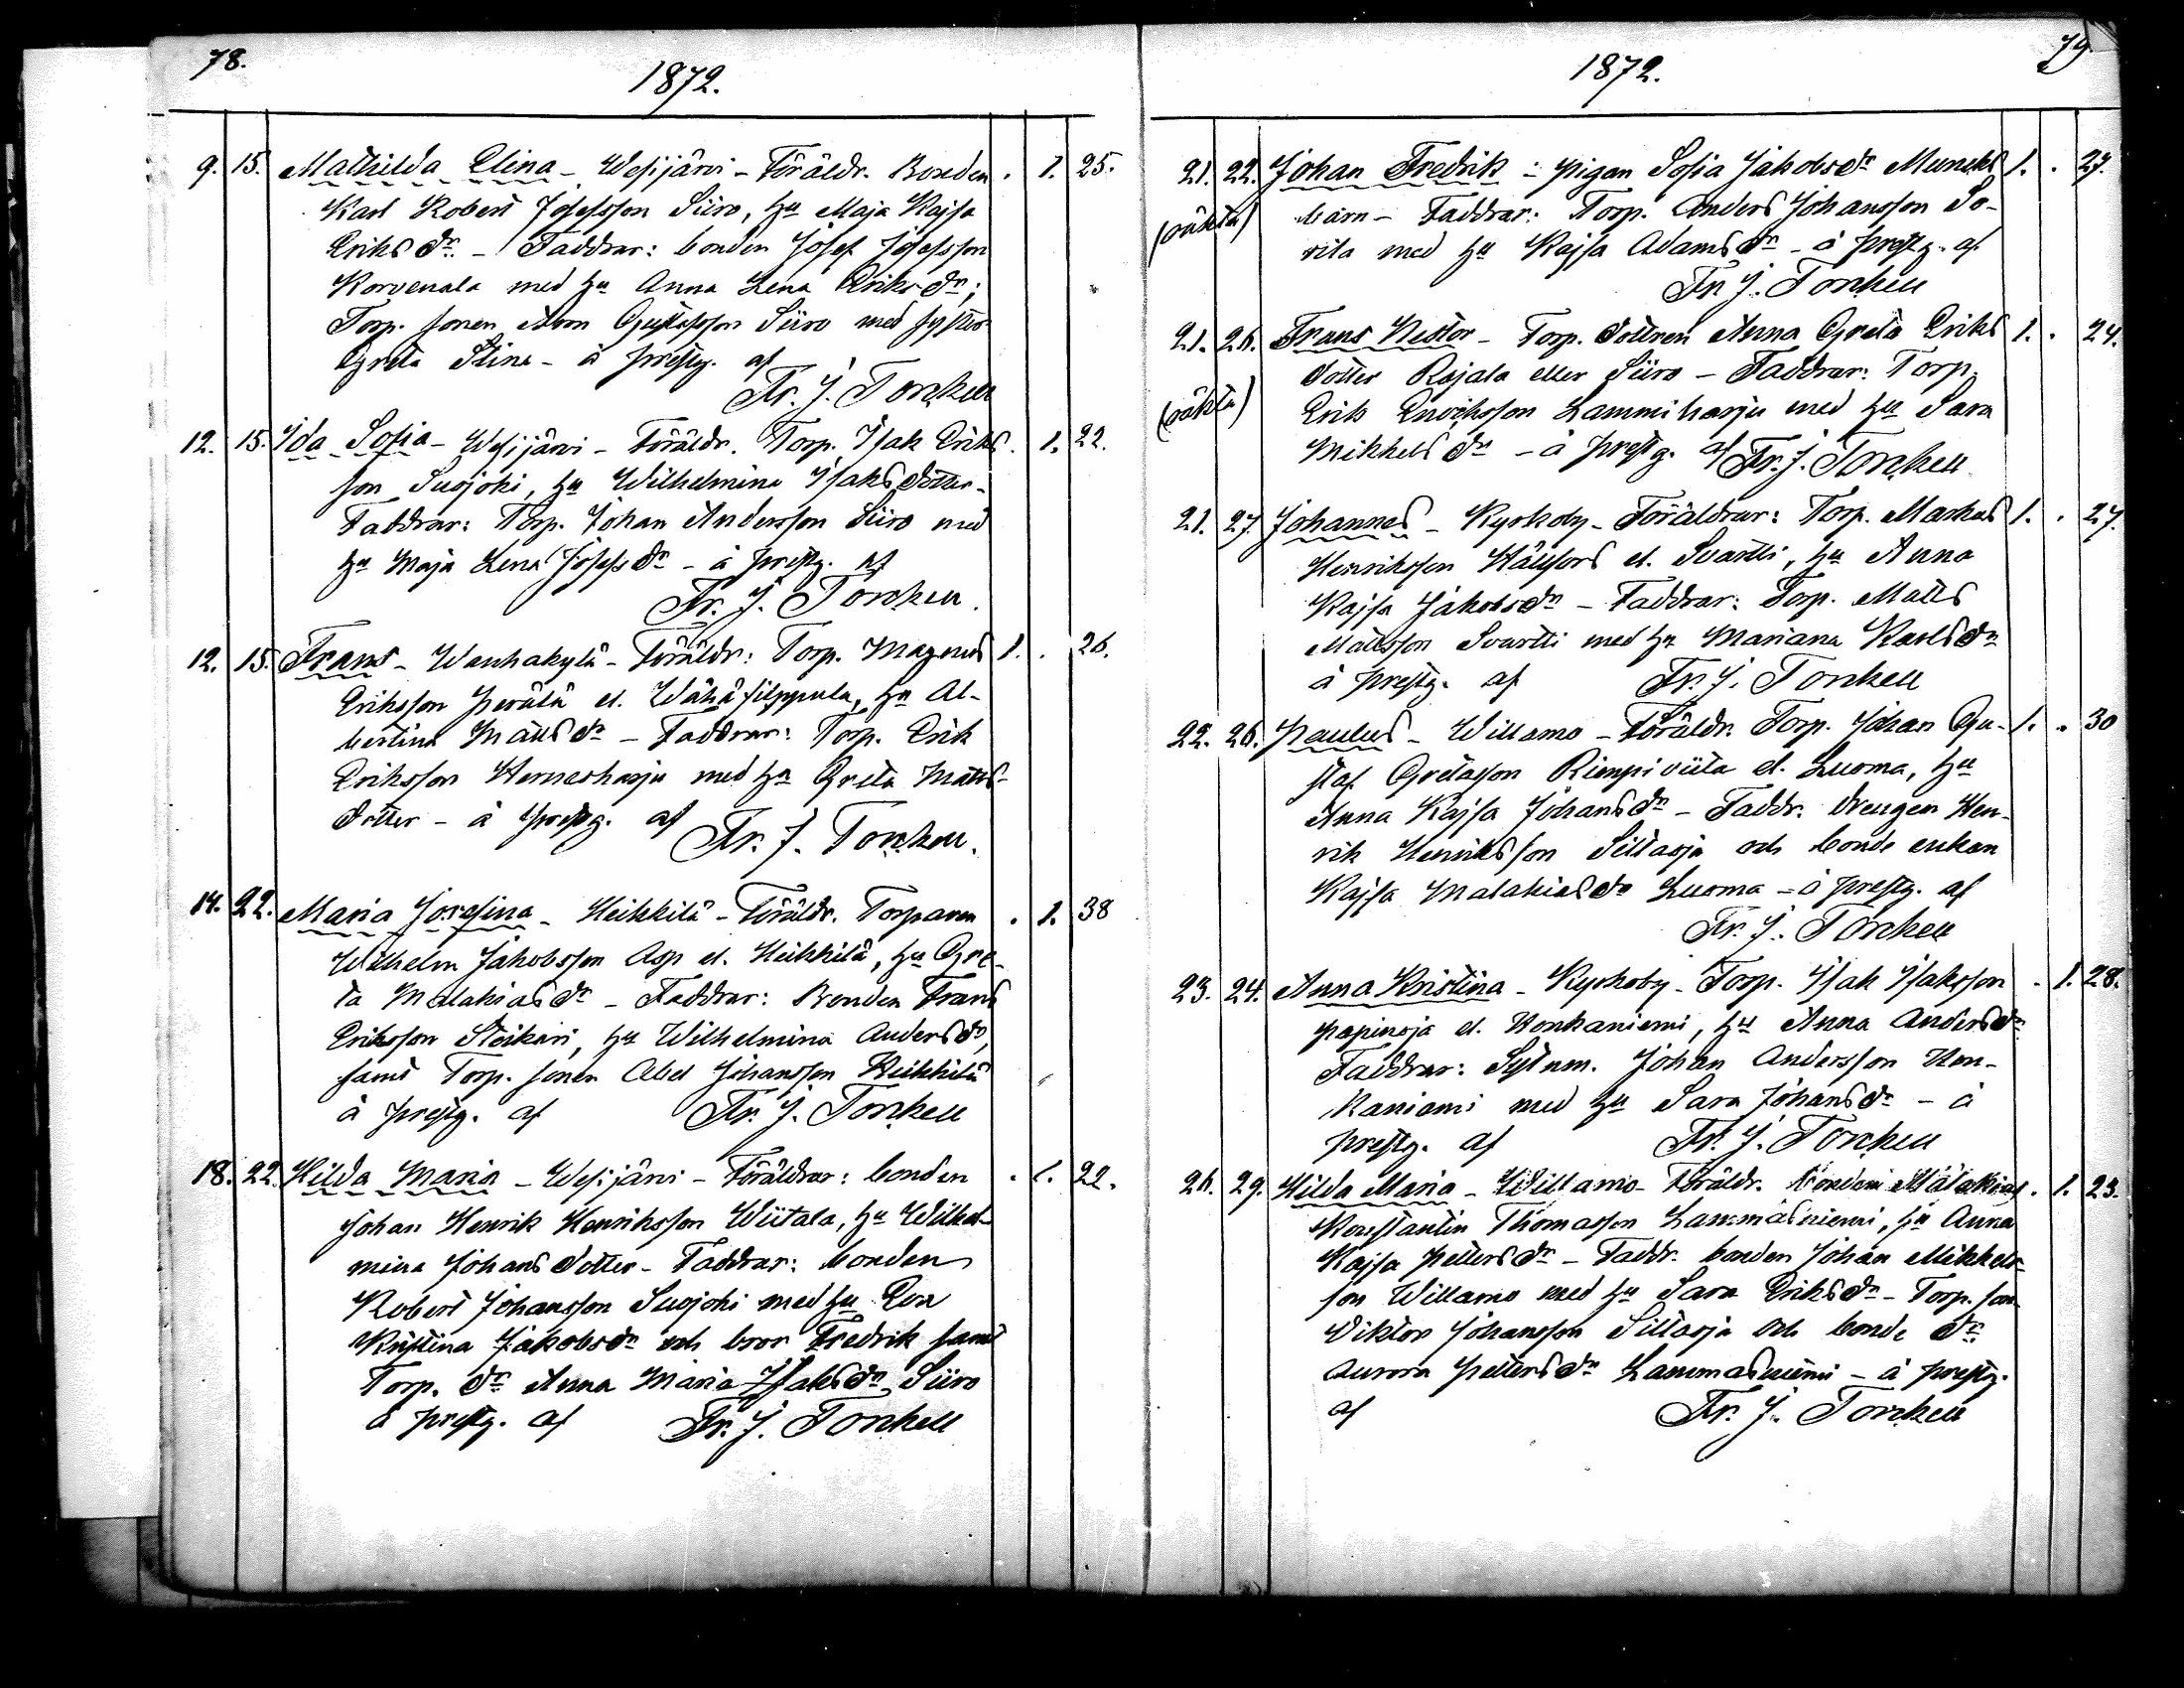 78.
1872.
9. 15. Mathilda Elina - Wesijärvi - Föräldr. Bonden . 1. 25.
Karl Robert Josefsson Siiro, hu Maja Kajsa
Eriks dr. - Faddrar: bonden Josef Josefsson
Korvenala med hu Anna Lena Eriks dr;
Torp. sonen Aron Gustafsson Siiro med syster
Greta Stina - å prestg. af
Fr. J. Torckell
12. 15. Ida Sofia - Wesijärvi - Föräldr. Torp. Isak Eriks . 1. 22.
son Suojoki, hu Wilhelmina Isaks dotter -
Faddrar: Torp. Johan Andersson Siiro med
hu Maja Lena Josefs dr - å prestg. af
Fr. J. Torckell.
12. 15. Frans - Wanhakylä - Föräldr: Torp. Magnus 1. . 26.
Eriksson Perälä el. Wähä Filppula, hu Al-
bertina Matts dr - Faddrar: Torp. Erik
Eriksson Hernesharju med hu Greta Matts-
dotter - å prestg. af
Fr. J. Torckell.
14. 22. Maria Josefina - Heikkilä - Föräldr. Torparen . 1. 38
Wilhelm Jakobsson Asp el. Heikkilä, hu Gre-
ta Malakias dr - Faddrar: Bonden Frans
Eriksson Steikari, hu Wilhelmina Anders dr,
samt Torp. sonen Abel Johansson Heikkilä
å prestg. af Fr. J. Torckell
18. 22. Hilda Maria - Wesijärvi - Föräldrar: bonden . 1. 22.
Johan Henrik Henriksson Wiitala, hu Wilhel-
mina Johans dotter - Faddrar: bonden
Robert Johansson Suojoki med hu Eva
Kristina Jakobs dr och bror Fredrik samt
Torp. dr Anna Maria Isaks dr Siiro
å prestg. af Fr. J. Torckell
79.
1872.
21. 22. Johan Fredrik - pigan Sofia Jakobs dr Muncks 1. . 27.
(oäkta) barn - Faddrar: Torp. Anders Johansson So-
vita med hu Kajsa Adams dr - å prestg. af
Fr. J. Torckell
21. 26. Frans Nestor - Torp. dottren Anna Greta Eriks 1. . 24.
dotter Rajala eller Siiro - Faddrar: Torp.
(oäkta) Erik Eriksson Lammiharju med hu Sara
Mikkels dr - å prestg. af Fr. J. Torckell
21. 27. Johannes - Kyrkoby - Föräldrar: Torp. Markus 1. . 27.
Henriksson Hällfors el. Svartti, hu Anna
Kajsa Jakobs dr - Faddrar: Torp. Matts
Mattsson Svartti med hu Mariana Karls dr
å prestg. af Fr. J. Torckell
22. 26. Paulus - Willamo - Föräldr. Torp. Johan Gu- 1. . 30
staf Gretasson Rimpiviita el. Luoma, hu
Anna Kajsa Johans dr - Faddr. drengen Hen-
rik Henriksson Sillasja och bonde enkan
Kajsa Malakias dr Luoma - å prestg. af
Fr. J. Torckell
23. 24. Anna Kristina - Kyrkoby - Torp. Isak Isaksson . 1. 28.
Papinoja el. Honkaniemi, hu Anna Anders dr
Faddrar: Johan Andersson Hon-
kaniemi med hu Sara Johans dr - å
prestg. af Fr. J. Torckell
26. 29. Hilda Maria - Willamo - Föräldr. bonden Malakias . 1. 23.
Konstantin Thomasson Lammasniemi, hu Anna
Kajsa Petters dr - Faddr. bonden Johan Mikkels-
son Willamo med hu Sara Eriks dr - Torp. son
Viktor Johansson Sillasja och bonde dr.
Aurora Petters dr Lammasniemi - å prestg.
af Fr. J. Torckell